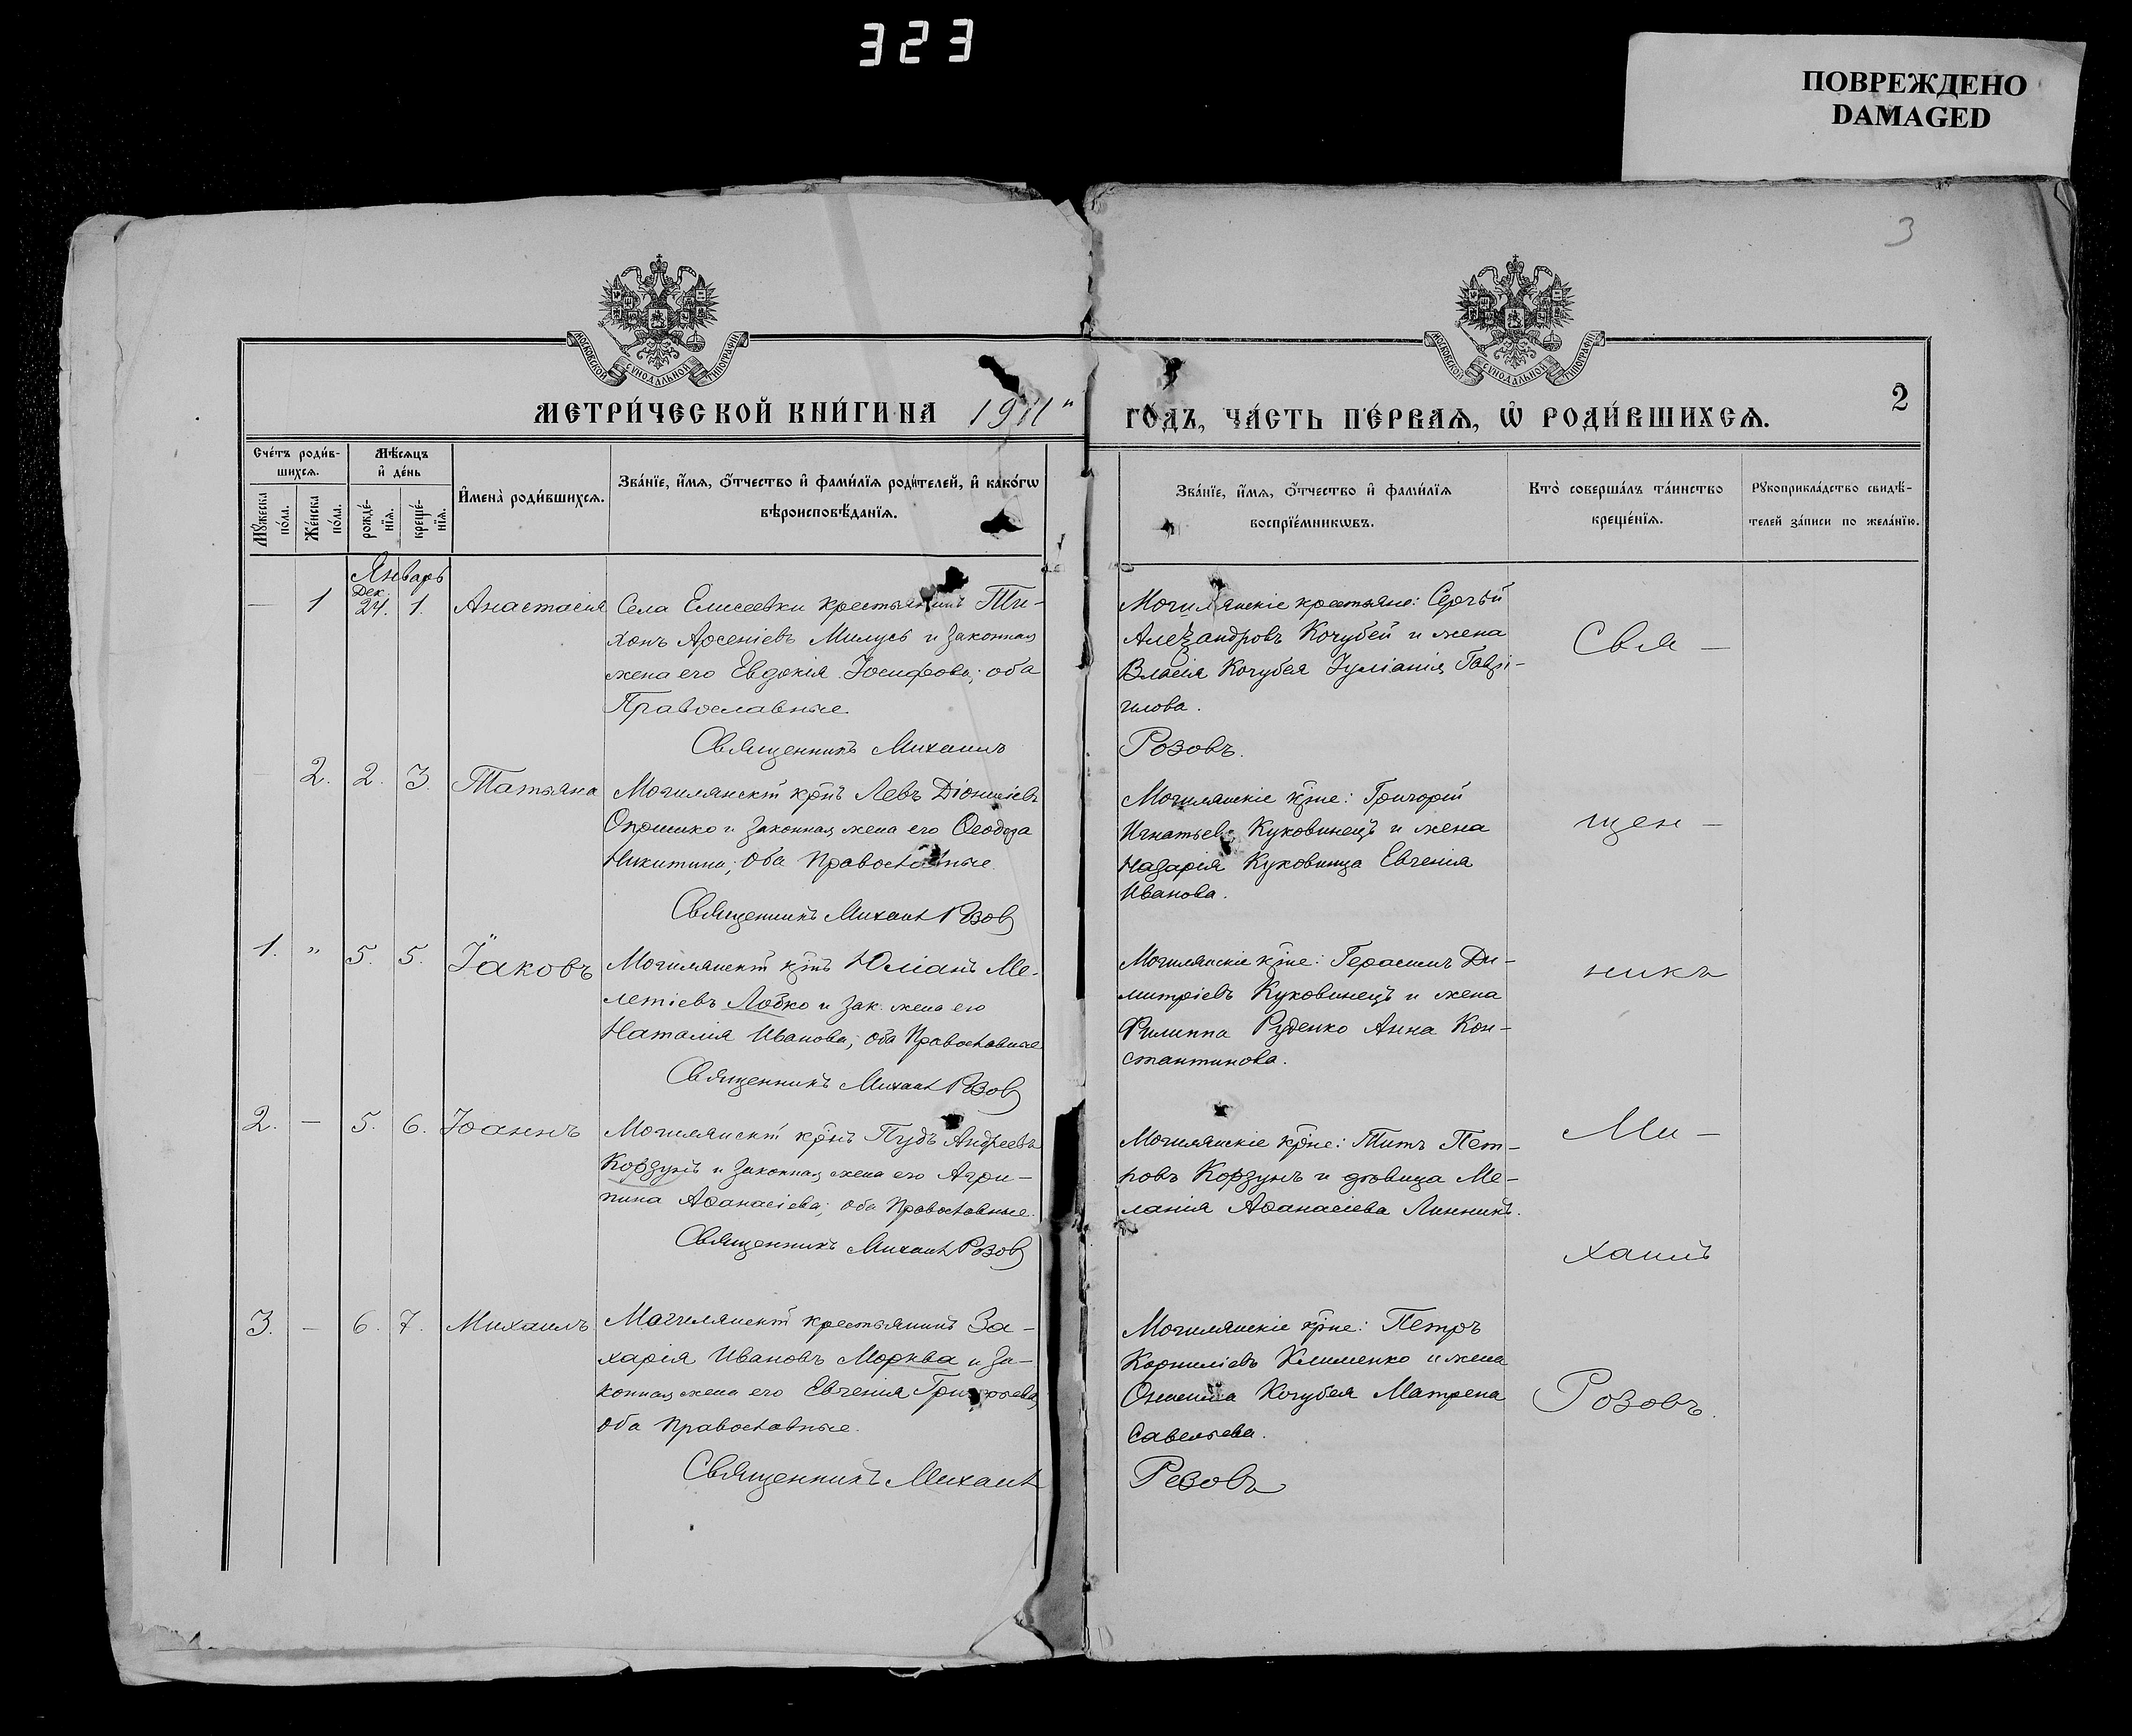 323
ПОВРЕЖДЕНО
DAMAGED
3
МОСКОВСКОЙ СѴНОДАЛЬНОЙ ТИПОГРАФІИ
МОСКОВСКОЙ СѴНОДАЛЬНОЙ ТИПОГРАФІИ
2
МЕТРИ́ЧЕСКОЙ КНИ́ГИ НА 1911"
ГО́ДЪ, ЧА́СТЬ ПЕ́РВАѦ, Ѡ҆ РОДИ́ВШИХСѦ.
Сче́тъ роди́в-
шихсѧ.
Мꙋ́жеска
по́ла.
Же́нска
по́ла.
Мѣ́сѧцъ
и҆ де́нь
рожде́-
нїѧ.
креще́-
нїѧ.
И҆мена̀ роди́вшихсѧ.
Зва́нїе, и҆́мѧ, ѻ҆́тчество и҆ фами́лїѧ роди́телей, и҆ како́гѡ
вѣроисповѣ́данїѧ.
Зва́нїе, и҆́мѧ, ѻ҆́тчество и҆ фами́лїѧ
воспрїе́мникѡвъ.
Кто̀ соверша́лъ та́инство
креще́нїѧ.
Рꙋкоприкла́дство свидѣ́-
телей за́писи по жела́нїю.
Январь
Дек.
— 1 24. 1. Анастасія
Села Елисеевки крестьянинъ Ти-
хонъ Арсеніевъ Милусь и законная
жена его Евдокія Іосифова; оба
Православные.
Священникъ Михаилъ
Могилянскіе крестьяне: Сергѣй
Александровъ Кочубей и жена
Власія Кочубея Іуліанія Гаврі-
илова.
Розовъ.
Свя —
— 2. 2. 3. Татьяна
Могилянскій кр̃нъ Левъ Діонисіевъ
Опошнко и законная жена его Ѳеодора
Никитина; оба Православные.
Священникъ Михаилъ Розовъ
Могилянскіе кр̃не: Григорій
Игнатьевъ Куковинецъ и жена
Назарія Куковинца Евгенія
Иванова.
щен —
1. " 5. 5. Іаковъ
Могилянскій кр̃нъ Юліанъ Ме-
летіевъ Лобко и зак. жена его
Наталія Иванова; оба Православные
Священникъ Михаилъ Розовъ
Могилянскіе кр̃не: Герасимъ Ди-
митріевъ Куковинецъ и жена
Филиппа Руденко Анна Кон-
стантинова.
никъ
2. — 5. 6. Іоаннъ
Могилянскій кр̃нъ Пудъ Андреевъ
Корзунъ и законная жена его Агри-
пина Аѳанасіева; оба Православные.
Священникъ Михаилъ Розовъ
Могилянскіе кр̃не: Титъ Пет-
ровъ Корзунъ и дѣвица Ме-
ланія Аѳанасіева Линникъ.
Ми —
хаилъ
3. — 6. 7. Михаилъ
Могилянскій крестьянинъ За-
харія Ивановъ Морква и за-
конная жена его Евгенія Григорьева,
оба Православные.
Священникъ Михаилъ
Могилянскіе кр̃не: Петръ
Корниліевъ Клименко и жена
Онисима Кочубея Матрена
Савельева.
Розовъ
Розовъ.